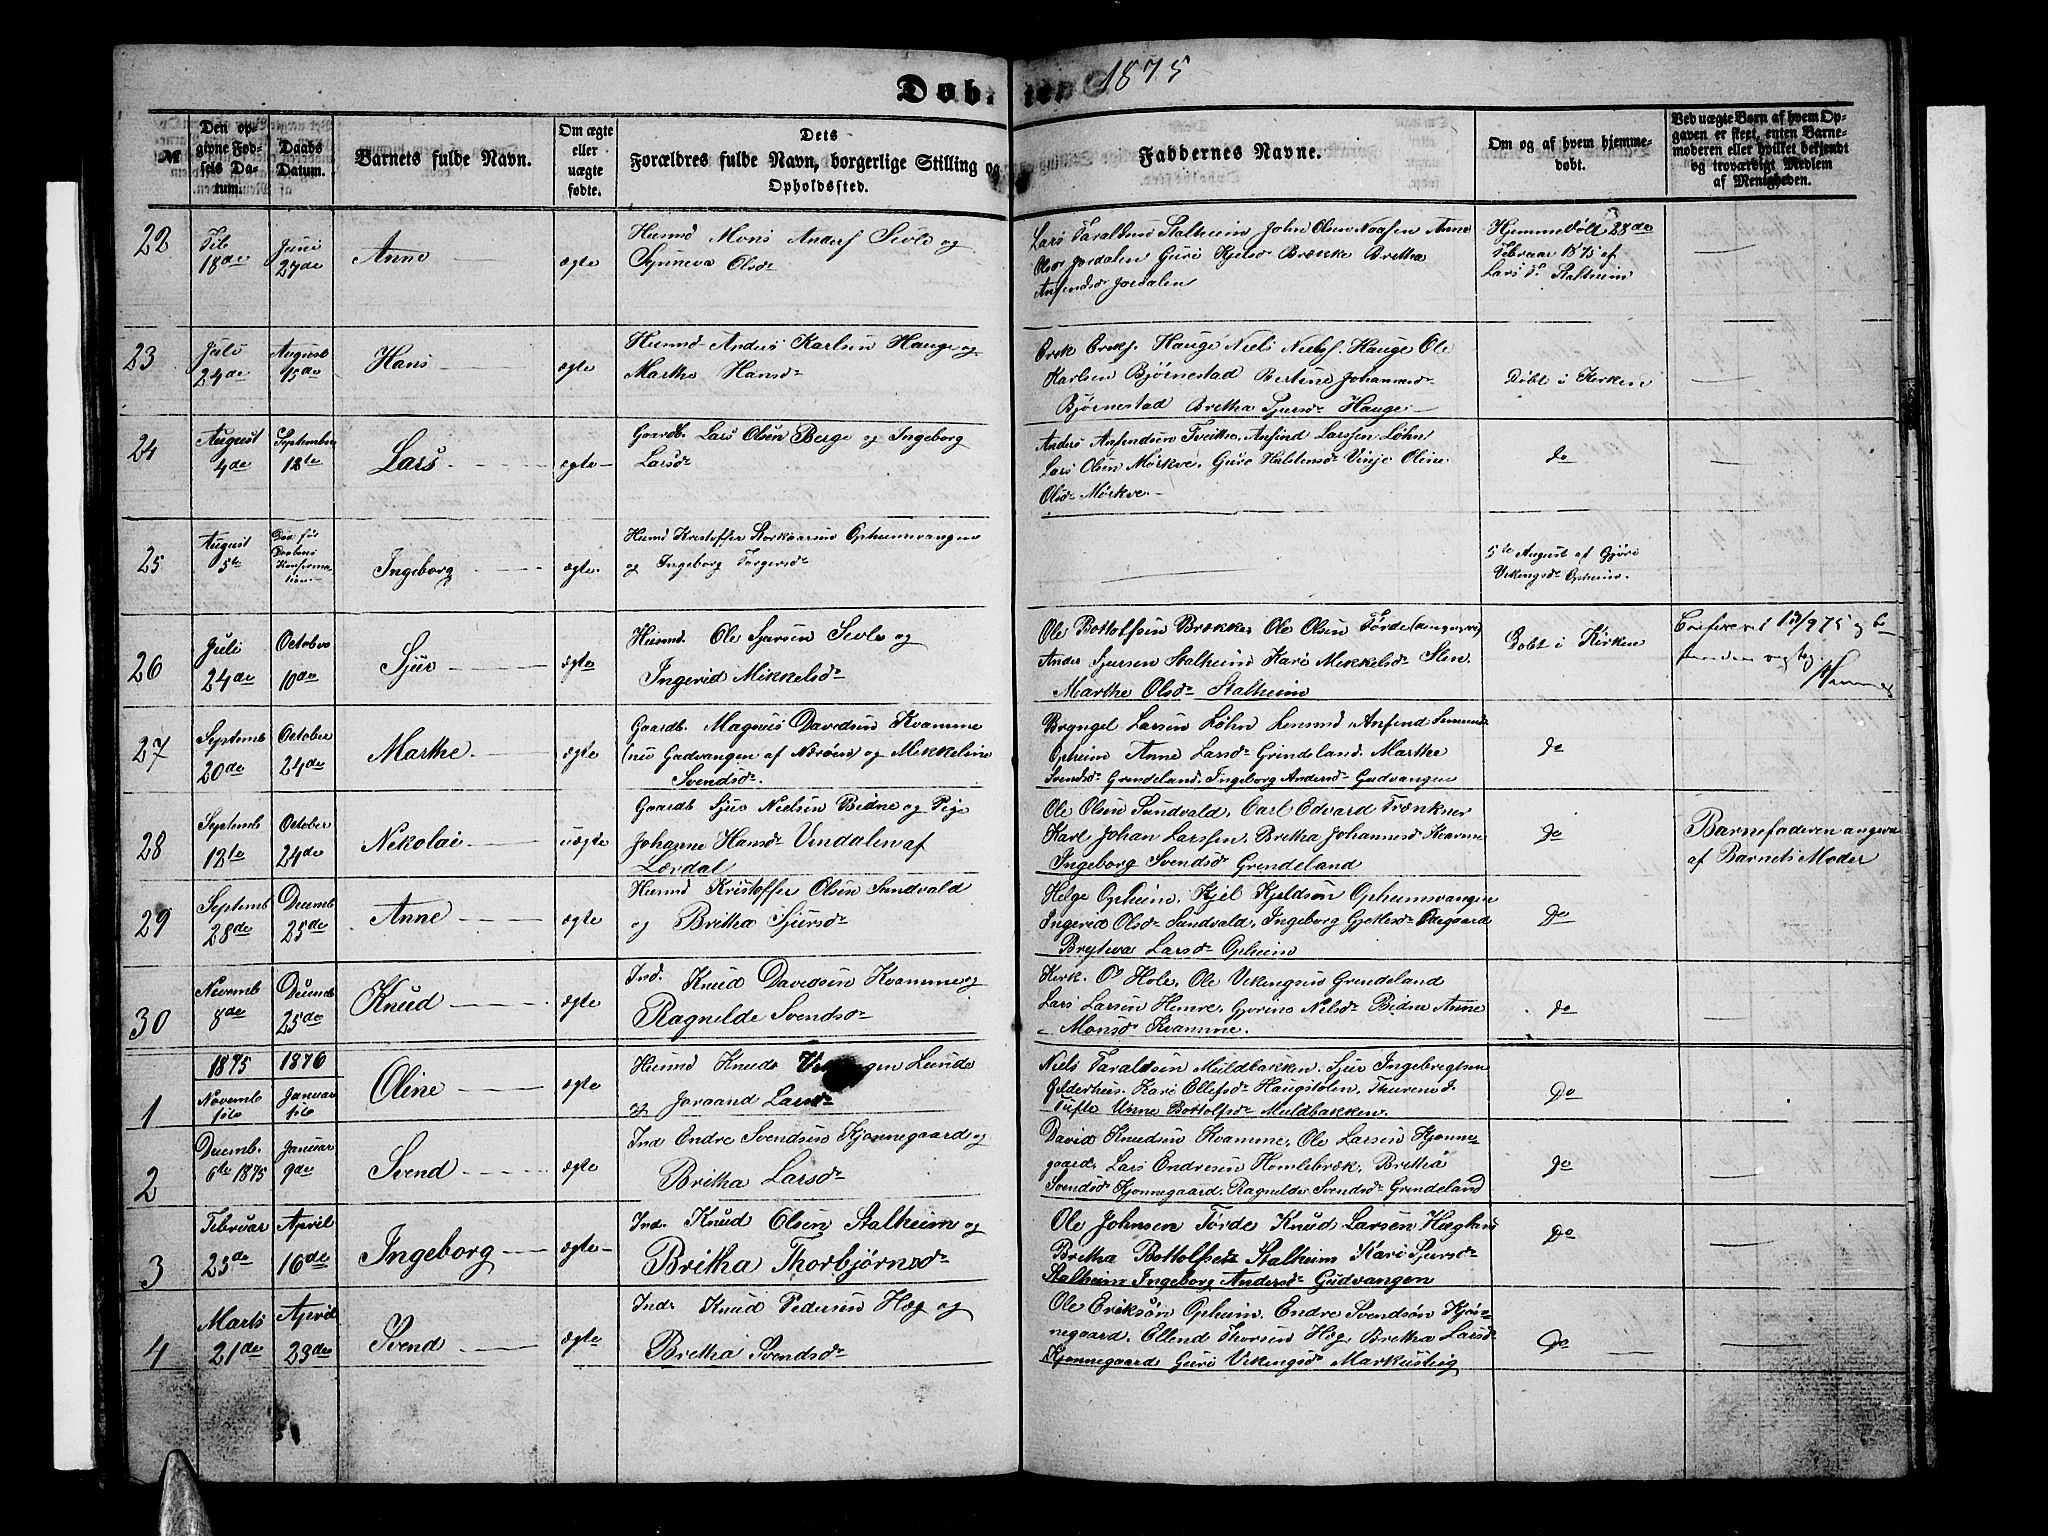 Døb. 1875
№
Den op-
givne Fød-
sels Da-
tum.
Daabs
Datum.
Barnets fulde Navn.
Om ægte
eller
uægte
fødte.
Dets
Forældres fulde Navn, borgerlige Stilling og
Opholdssted.
Faddernes Navne.
Om og af hvem hjemme-
døbt.
Ved uægte Børn af hvem Op-
gaven er skeet, enten Barne-
moderen eller hvilket bekjendt
og troværdigt Medlem
af Menigheden.
22
Feb
18de
Juni
27de
Anne
ægte
Huusmd Mons Anders Sivle og
Synneva Olsdr
Lars Taraldsen Stalheim John Olsen Anne
Olsdr Jordalen Guri Brække Britha
Anfindsdr Jordalen
Hjemmedøbt 28de
Februar 1875 af
Lars T. Stalheim
23
Juli
24de
August
15de
Hans
ægte
Huusmd Anders Karlsen Hauge og
Martha Hansdr
Erik Eriks. Hauge Niels Niels. Hauge Ole
Karlsen Bjørnestad Bertine Johannesdr
Bjørnestad Britha Sjursdr Hauge
Døbt i Kirken
24
August
4de
September
12te
Lars
ægte
Gaardb. Lars Olsen Berge og Ingeborg
Larsdr
Anders Anfindsen Tveithe, Anfind Larssen Løhn
Lars Olsen Mørkve, Guro Halstensdr Vinje Oline
Olsdr Mørkve
do
25
August
5te
Død før
Daabens
Konfirma-
tion
Ingeborg
ægte
Husmd Kristoffer Opheimsvangen
og Ingeborg Torgersdr
5te August af Gjøri
Vikingsdr Opheim.
26
Juli
24de
October
10de
Sjur
ægte
Husmd. Ole Sjursen Sivle og
Ingerid Mikkelsdr
Ole Bottolfsen Brække Ole Olsen Tørde
Anders Sjursen Stalheim Kari Mikkelsdr Slen
Marthe Olsdr Stalheim
Døbt i Kirken
27
Septemb
20de
October
24de
Marthe
ægte
Gaardb. Magnus Davidsen Kvamme
(nu Gudvangen af Nærøen) og Mikkeline
Svendsdr
Bryngel Larsen Løhn Anfind
Opheim Anne Larsdr Grindeland. Marthe
Svendsdr Grendeland, Ingeborg Andersdr Gudvangen
do
28
Septemb
12te
October
24de
Nikolai
uægte
Gaardb Sjur Nielsen Bidne og Pige
Johanne Hansdr Vindalen af
Lærdal
Ole Olsen Sundvald, Carl Edvard Trænkner
Karl Johan Larssen, Britha Johannesdr Kvamme
Ingeborg Svendsdr Grendeland
do
Barnefaderen angiven
af Barnets Moder
29
Septemb
28de
Decemb
25de
Anne
ægte
Husmd Kristoffer Olsen Sundvald
og Britha Sjursdr
Helge Opheim, Kjel Kjeldsøn Opheimsvangen
Ingerid Olsdr Sundvald, Ingeborg
Bryteva Larsdr Opheim
Do
30
Novemb
8de
Decemb
25de
Knud
ægte
Ind. Knud Davidsen Kvamme og
Ragnilde Svendsdr
Kirk. Hole, Ole Vikingsen Grendeland
Lars Larsen Hemre, Nelsdr Bidne Anne
Monsdr Kvamme.
do
1875
1876
1
Novemb
Januar
Oline
ægte
Husmd Knud Lunde
og Joraand Larsdr
Niels Taraldsen Muldbakken, Sjur Ingebregtsen
Gelderhus, Kari Ellefsdr Haugstolen, Thurene
Tufte Unne Bottolfsdr Muldbakken
Do
2
Decemb.
6te 1875
Januar
9de
Svend
ægte
Ind Endre Svendsen Kjonnegaard og
Britha Larsdr
David Knudsen Kvamme, Ole Larsen Kjonne-
gaard, Lars Endresen Homlebræk, Britha
Svendsdr Kjonnegaard, Ragnilde Svendsdr Grendeland
do
3
Februar
25de
April
16de
Ingeborg
ægte
Ind. Knud Olsen Stalheim og
Britha Thorbjørnsdr
Ole Johnsen Tørde Knud Larsen
Britha Bottolfsdr Stalheim Kari Sjursdr
Stalheim Ingeborg Andersdr Gudvangen
Do
4
Marts
21de
April
23de
Svend
ægte
Ind. Knud Pedersen Hæg og
Britha Svendsdr
Ole Eriksøn Opheim, Endre Svendsøn Kjøn-
negaard, Ellend Thorsen Hæg, Britha Larsdr
Kjonnegaard Guri Vikingsdr Markusteig
Do